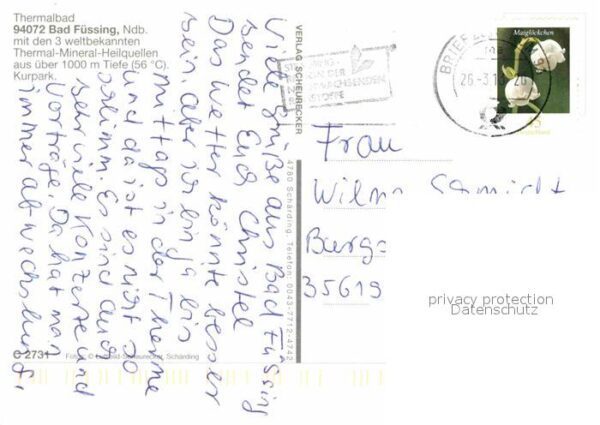 Thermalbad
94072 Bad Füssing, Ndb.
mit den 3 weltbekannten
Thermal-Mineral-Heilquellen
aus über 1000 m Tiefe (56 °C).
Kurpark.
Viele Grüße aus Bad Füssing
sendet Euch Christel
Das Wetter könnte besser
sein. Aber ich bin ja bis
mittags in der Therme
und da ist es nicht so
schlimm. Es sind auch
sehr viele Konzerte und
Vorträge. Da hat man
immer abwechslung.
C 2731
VERLAG SCHEURECKER
4780 Schärding, Telefon: 0043-7712-4742
BRIEF
26-3
Maiglöckchen
45
Deutschland
Frau
Wilma Schmidt
Burg
35619
privacy protection
Datenschutz